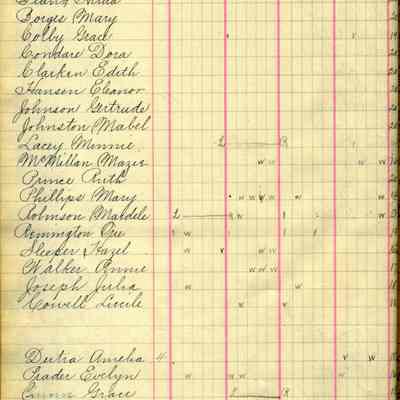 Borges Mary
Colby Grace
Condare Dora
Clarken Edith
Hansen Eleanor
Johnson Gertrude
Johnston Mabel
Lacey Minnie L R
McMillan Mazie w w w w
Prince Ruth
Phillips Mary w w w w w
Robinson L w
Remington w
Sleeper Hazel w v w w
Walker Annie w w w
Joseph Julia w w
Cowell Lucile w v
Dutra Amelia 4 v w
Prader Evelyn w w w w
Grace L R